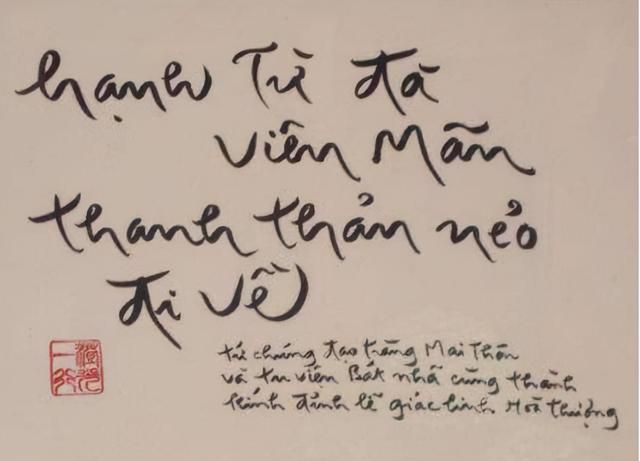 hạnh Từ đã
viên mãn
thanh thản nẻo
đi về
tứ chúng đạo tràng Mai Thôn
và tu viện Bát nhã cùng thành
kính đỉnh lễ giác linh Hoà thượng